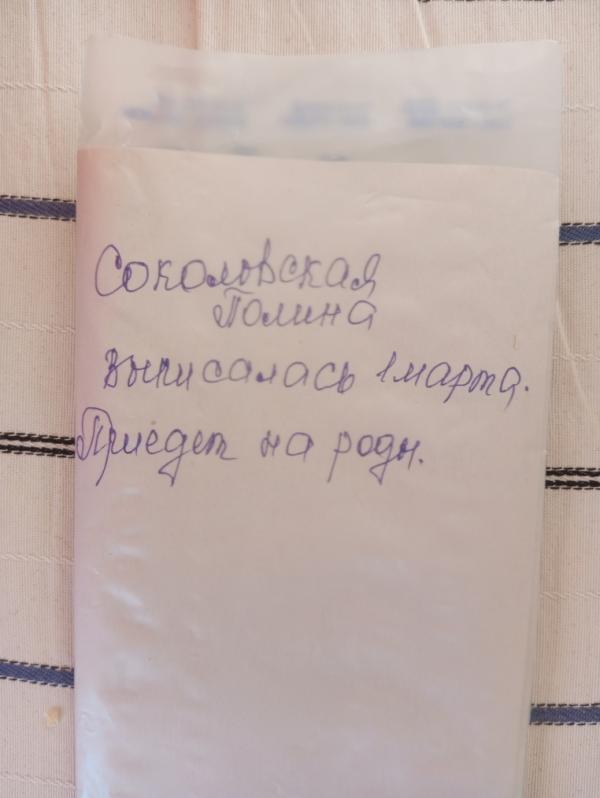 Соколовская
Полина
выписалась 1 марта.
Приедет на роды.